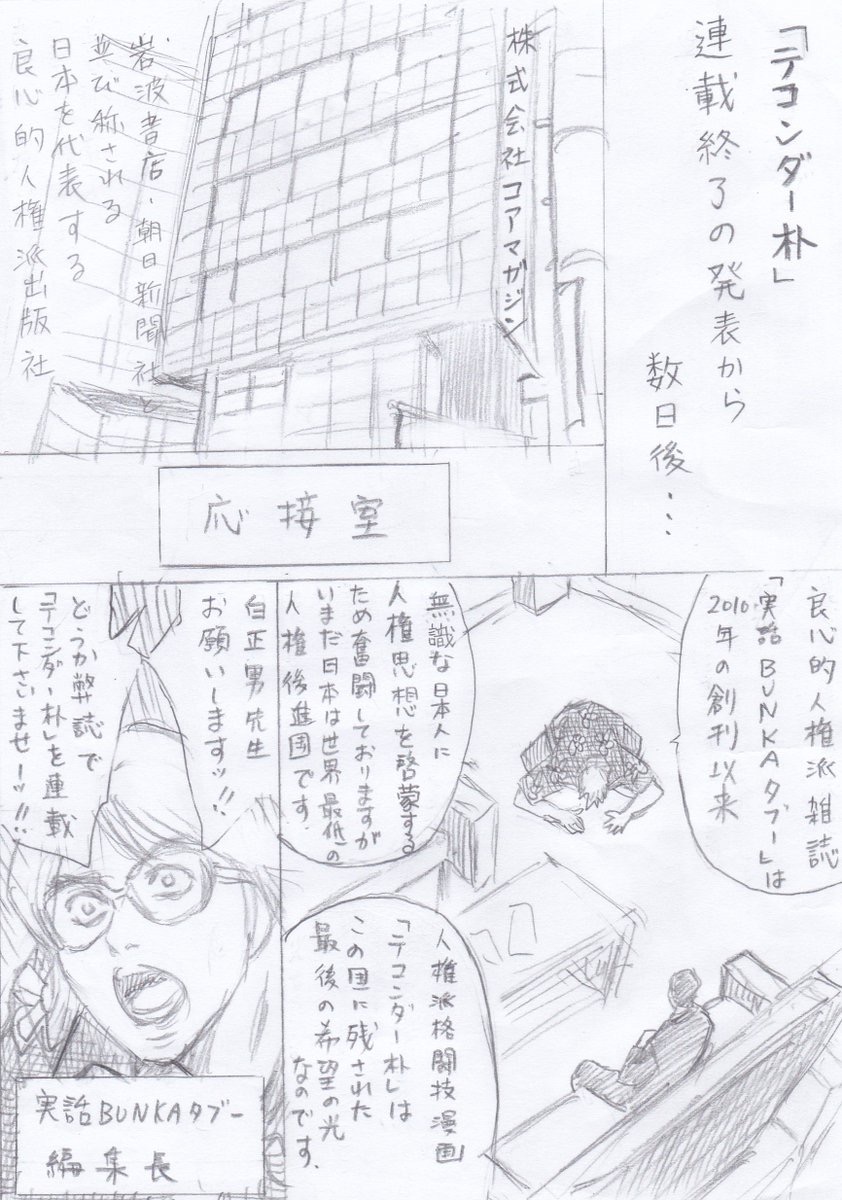 「テコンダー朴」
連載終了の発表から
数日後…
株式会社コアマガジン
岩波書店・朝日新聞社と
並び称される
日本を代表する
良心的人権派出版社
応接室
良心的人権派雑誌
「実話BUNKAタブー」は
2010年の創刊以来
無識な日本人に
人権思想を啓蒙する
ため奮闘しておりますが
いまだ日本は世界最低の
人権後進国です.
人権派格闘技漫画
「テコンダー朴」は
この国に残された
最後の希望の光
なのです.
白正男先生
お願いしますッ!!
どうか弊誌で
「テコンダー朴」を連載
して下さいませーッ!!
実話BUNKAタブー
編集長